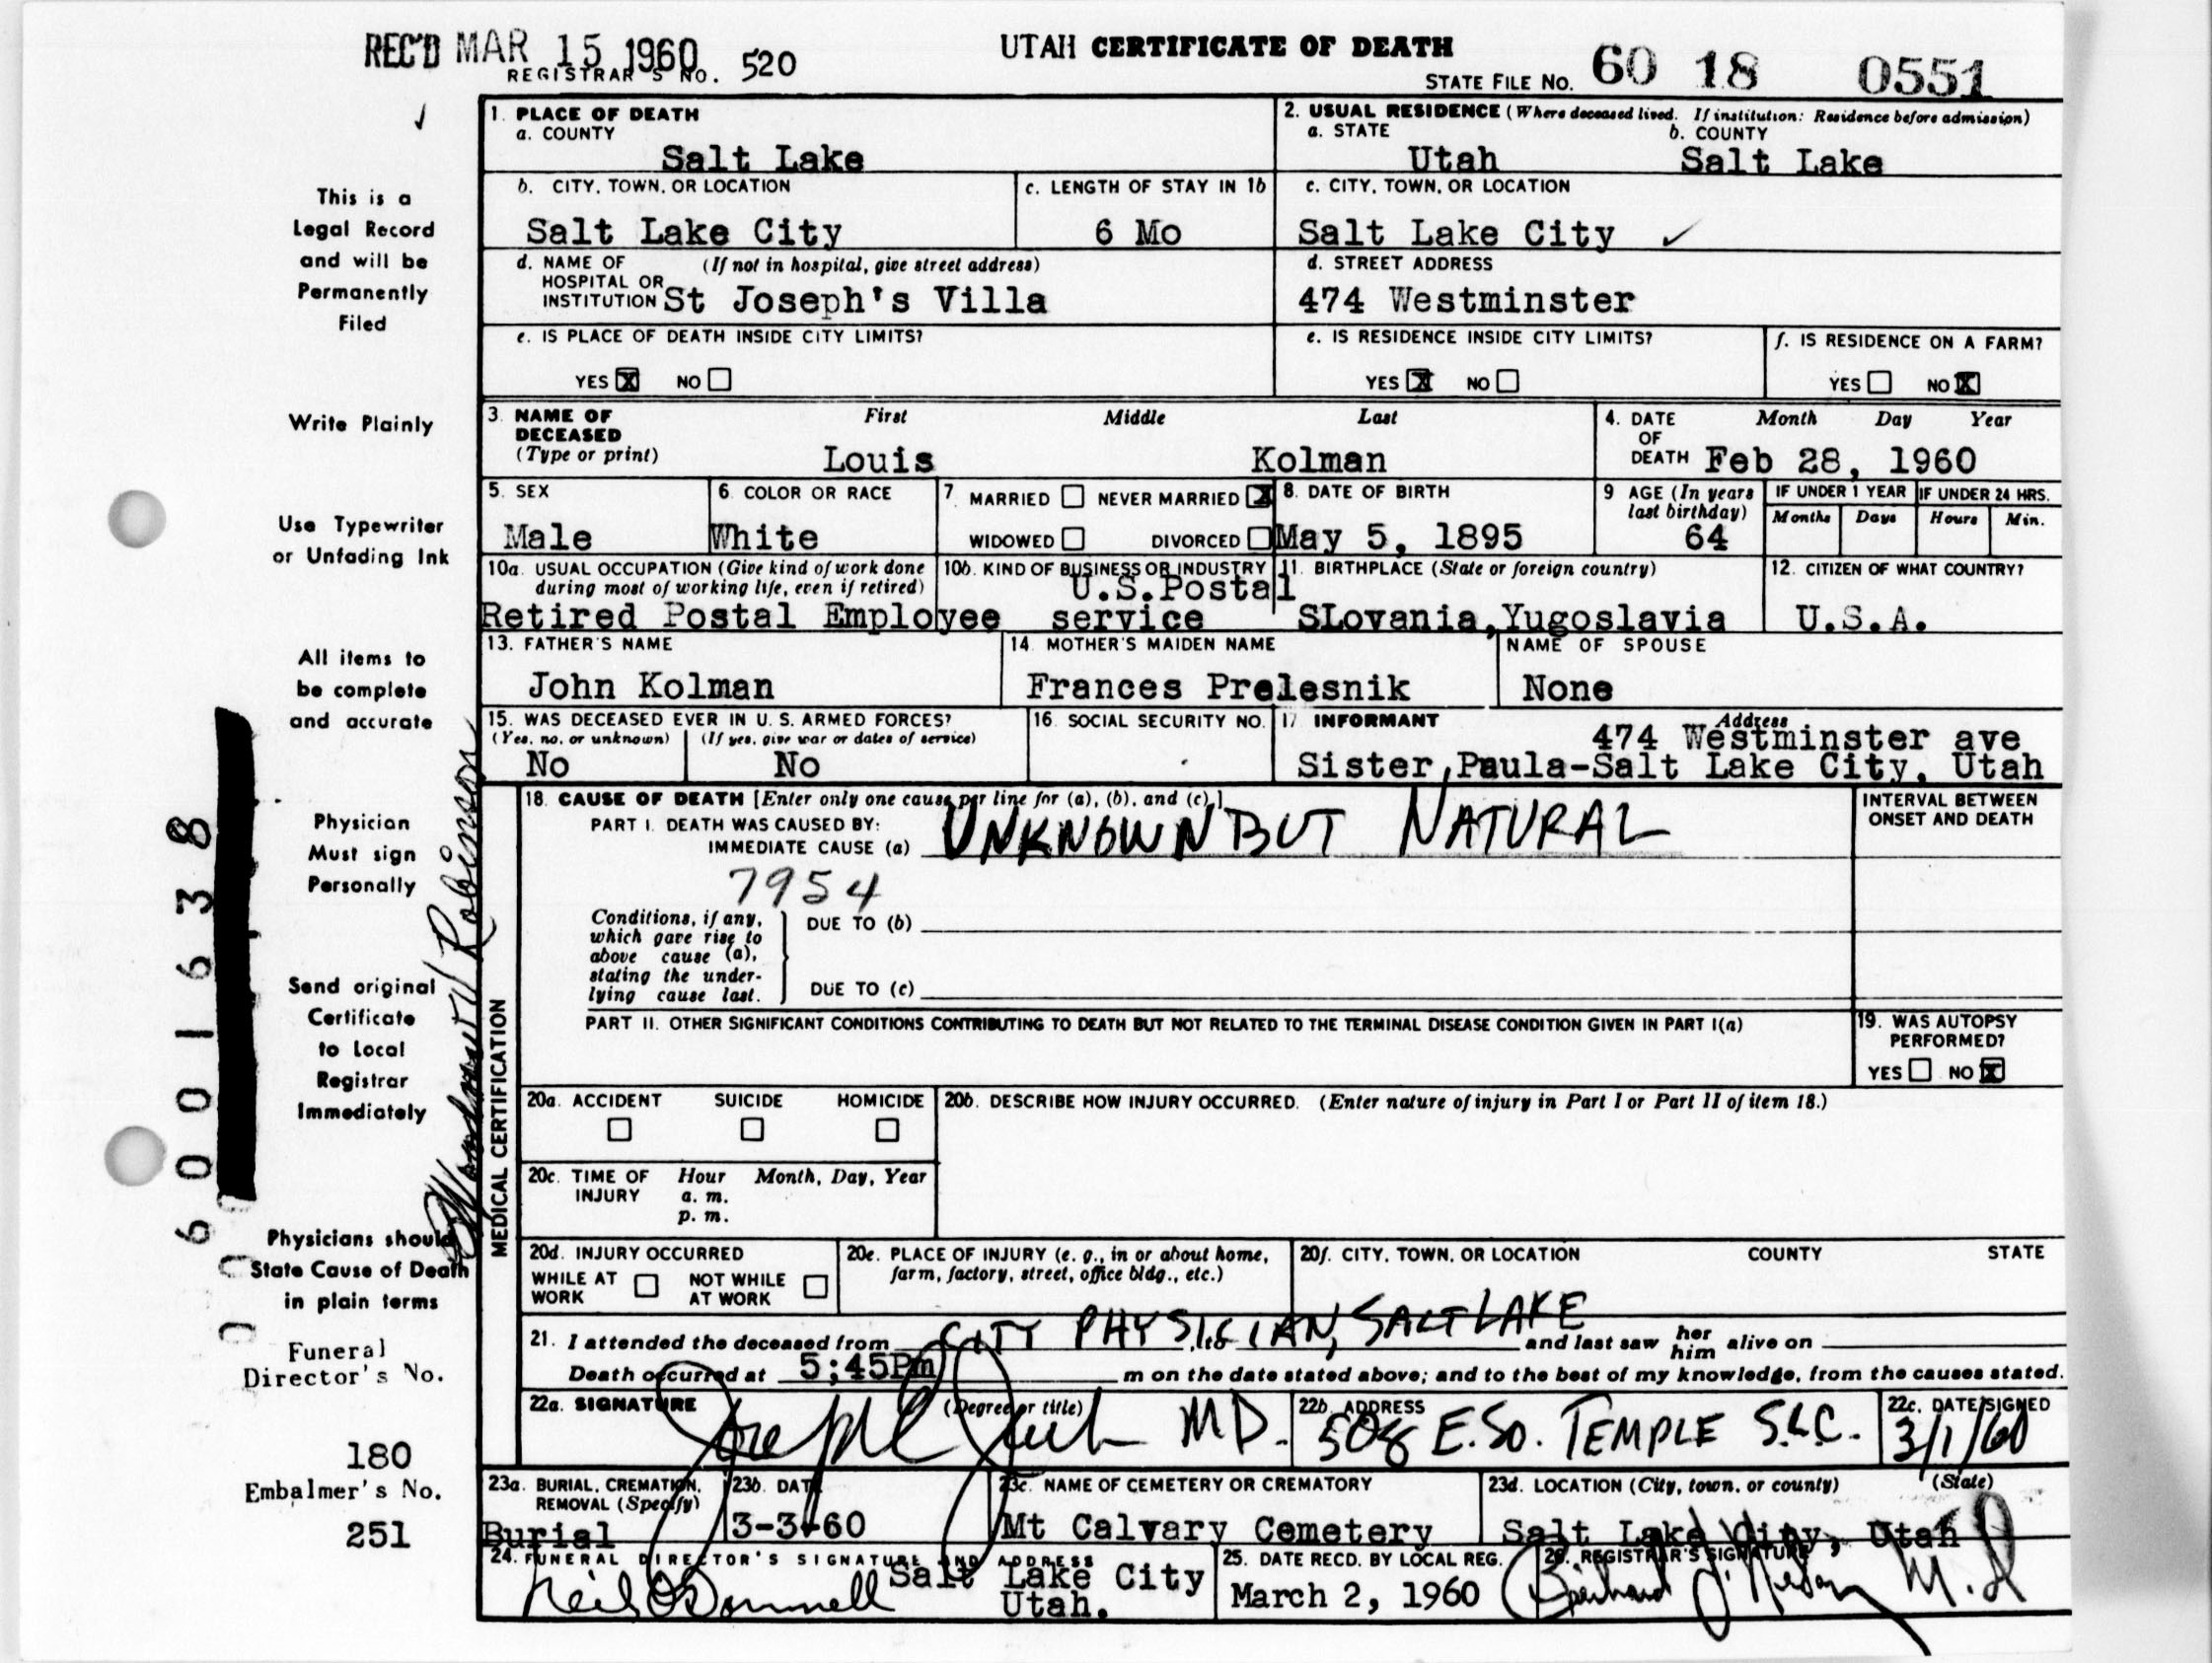 REC'D MAR 15 1960
REGISTRAR'S NO. 520
UTAH CERTIFICATE OF DEATH
STATE FILE NO. 60 18 0551
This is a
Legal Record
and will be
Permanently
Filed
Write Plainly
Use Typewriter
or Unfading Ink
All items to
be complete
and accurate
Physician
Must sign
Personally
Send original
Certificate
to Local
Registrar
Immediately
Physicians should
State Cause of Death
in plain terms
Funeral
Director's No.
180
Embalmer's No.
251
6001638
Robinson
1. PLACE OF DEATH
a. COUNTY
Salt Lake
2. USUAL RESIDENCE (Where deceased lived. If institution: Residence before admission)
a. STATE b. COUNTY
Utah Salt Lake
b. CITY, TOWN, OR LOCATION
Salt Lake City
c. LENGTH OF STAY IN 1b
6 Mo
c. CITY, TOWN, OR LOCATION
Salt Lake City ✓
d. NAME OF (If not in hospital, give street address)
HOSPITAL OR
INSTITUTION St Joseph's Villa
d. STREET ADDRESS
474 Westminster
e. IS PLACE OF DEATH INSIDE CITY LIMITS?
YES X NO
e. IS RESIDENCE INSIDE CITY LIMITS?
YES X NO
f. IS RESIDENCE ON A FARM?
YES NO X
3. NAME OF First Middle Last
DECEASED
(Type or print) Louis Kolman
4. DATE Month Day Year
OF
DEATH Feb 28, 1960
5. SEX
Male
6. COLOR OR RACE
White
7. MARRIED NEVER MARRIED X
WIDOWED DIVORCED
8. DATE OF BIRTH
May 5, 1895
9 AGE (In years
last birthday)
64
IF UNDER 1 YEAR IF UNDER 24 HRS.
Months Days Hours Min.
10a. USUAL OCCUPATION (Give kind of work done
during most of working life, even if retired)
Retired Postal Employee
10b. KIND OF BUSINESS OR INDUSTRY
U.S.Postal
service
11. BIRTHPLACE (State or foreign country)
SLovania,Yugoslavia
12. CITIZEN OF WHAT COUNTRY?
U.S.A.
13. FATHER'S NAME
John Kolman
14. MOTHER'S MAIDEN NAME
Frances Prelesnik
NAME OF SPOUSE
None
15. WAS DECEASED EVER IN U. S. ARMED FORCES?
(Yes, no, or unknown) (If yes, give war or dates of service)
No No
16. SOCIAL SECURITY NO.
17 INFORMANT Address
474 Westminster ave
Sister,Paula-Salt Lake City, Utah
MEDICAL CERTIFICATION
18. CAUSE OF DEATH [Enter only one cause per line for (a), (b), and (c).]
PART I. DEATH WAS CAUSED BY:
IMMEDIATE CAUSE (a) UNKNOWN BUT NATURAL
7954
INTERVAL BETWEEN
ONSET AND DEATH
Conditions, if any,
which gave rise to
above cause (a),
stating the under-
lying cause last.
DUE TO (b)
DUE TO (c)
PART II. OTHER SIGNIFICANT CONDITIONS CONTRIBUTING TO DEATH BUT NOT RELATED TO THE TERMINAL DISEASE CONDITION GIVEN IN PART I(a)
19. WAS AUTOPSY
PERFORMED?
YES NO X
20a. ACCIDENT SUICIDE HOMICIDE
20b. DESCRIBE HOW INJURY OCCURRED. (Enter nature of injury in Part I or Part II of item 18.)
20c. TIME OF Hour Month, Day, Year
INJURY a. m.
p. m.
20d. INJURY OCCURRED
WHILE AT NOT WHILE
WORK AT WORK
20e. PLACE OF INJURY (e. g., in or about home,
farm, factory, street, office bldg., etc.)
20f. CITY, TOWN, OR LOCATION COUNTY STATE
21. I attended the deceased from CITY PHYSICIAN, SALT LAKE , to and last saw her him alive on
Death occurred at 5;45Pm m on the date stated above; and to the best of my knowledge, from the causes stated.
22a. SIGNATURE (Degree or title)
Joseph MD.
22b. ADDRESS
508 E. SO. TEMPLE S.L.C.
22c. DATE SIGNED
3/1/60
23a. BURIAL, CREMATION,
REMOVAL (Specify)
Burial
23b. DATE
3-3-60
23c. NAME OF CEMETERY OR CREMATORY
Mt Calvary Cemetery
23d. LOCATION (City, town, or county) (State)
Salt Lake City, Utah
24. FUNERAL DIRECTOR'S SIGNATURE AND ADDRESS
Neil O'Donnell Salt Lake City
Utah.
25. DATE RECD. BY LOCAL REG.
March 2, 1960
26. REGISTRAR'S SIGNATURE
M.D